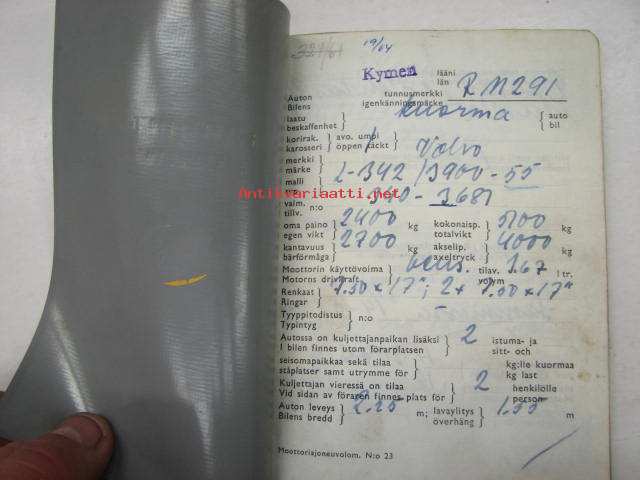 321/61 19/64
Kymen lääni län
Auton Bilens tunnusmerkki igenkänningsmärke RM291
laatu beskaffenhet kuorma auto bil
korirak. karosseri avo. umpi öppen täckt
merkki märke Volvo
malli L-342 /3900-55
valm. tillv. n:o 3681
oma paino egen vikt 2400 kg kokonaisp. totalvikt 5100 kg
kantavuus bärförmåga 2700 kg akselip. axeltryck 4000 kg
Moottorin käyttövoima Motorns drivkraft bens. tilav. volym 3.67 ltr.
Renkaat Ringar 7.50 x 17"; 2x 7.50 x 17"
Tyyppitodistus Typintyg n:o -
Autossa on kuljettajanpaikan lisäksi I bilen finnes utom förarplatsen 2 istuma- ja sitt- och
seisomapaikkaa sekä tilaa ståplatser samt utrymme för kg:lle kuormaa kg last
Kuljettajan vieressä on tilaa Vid sidan av föraren finnes plats för 2 henkilölle person
Auton leveys Bilens bredd 2.25 m; lavaylitys överhäng 1.55 m
Moottoriajoneuvolom. N:o 23
Antikvariaatti.net